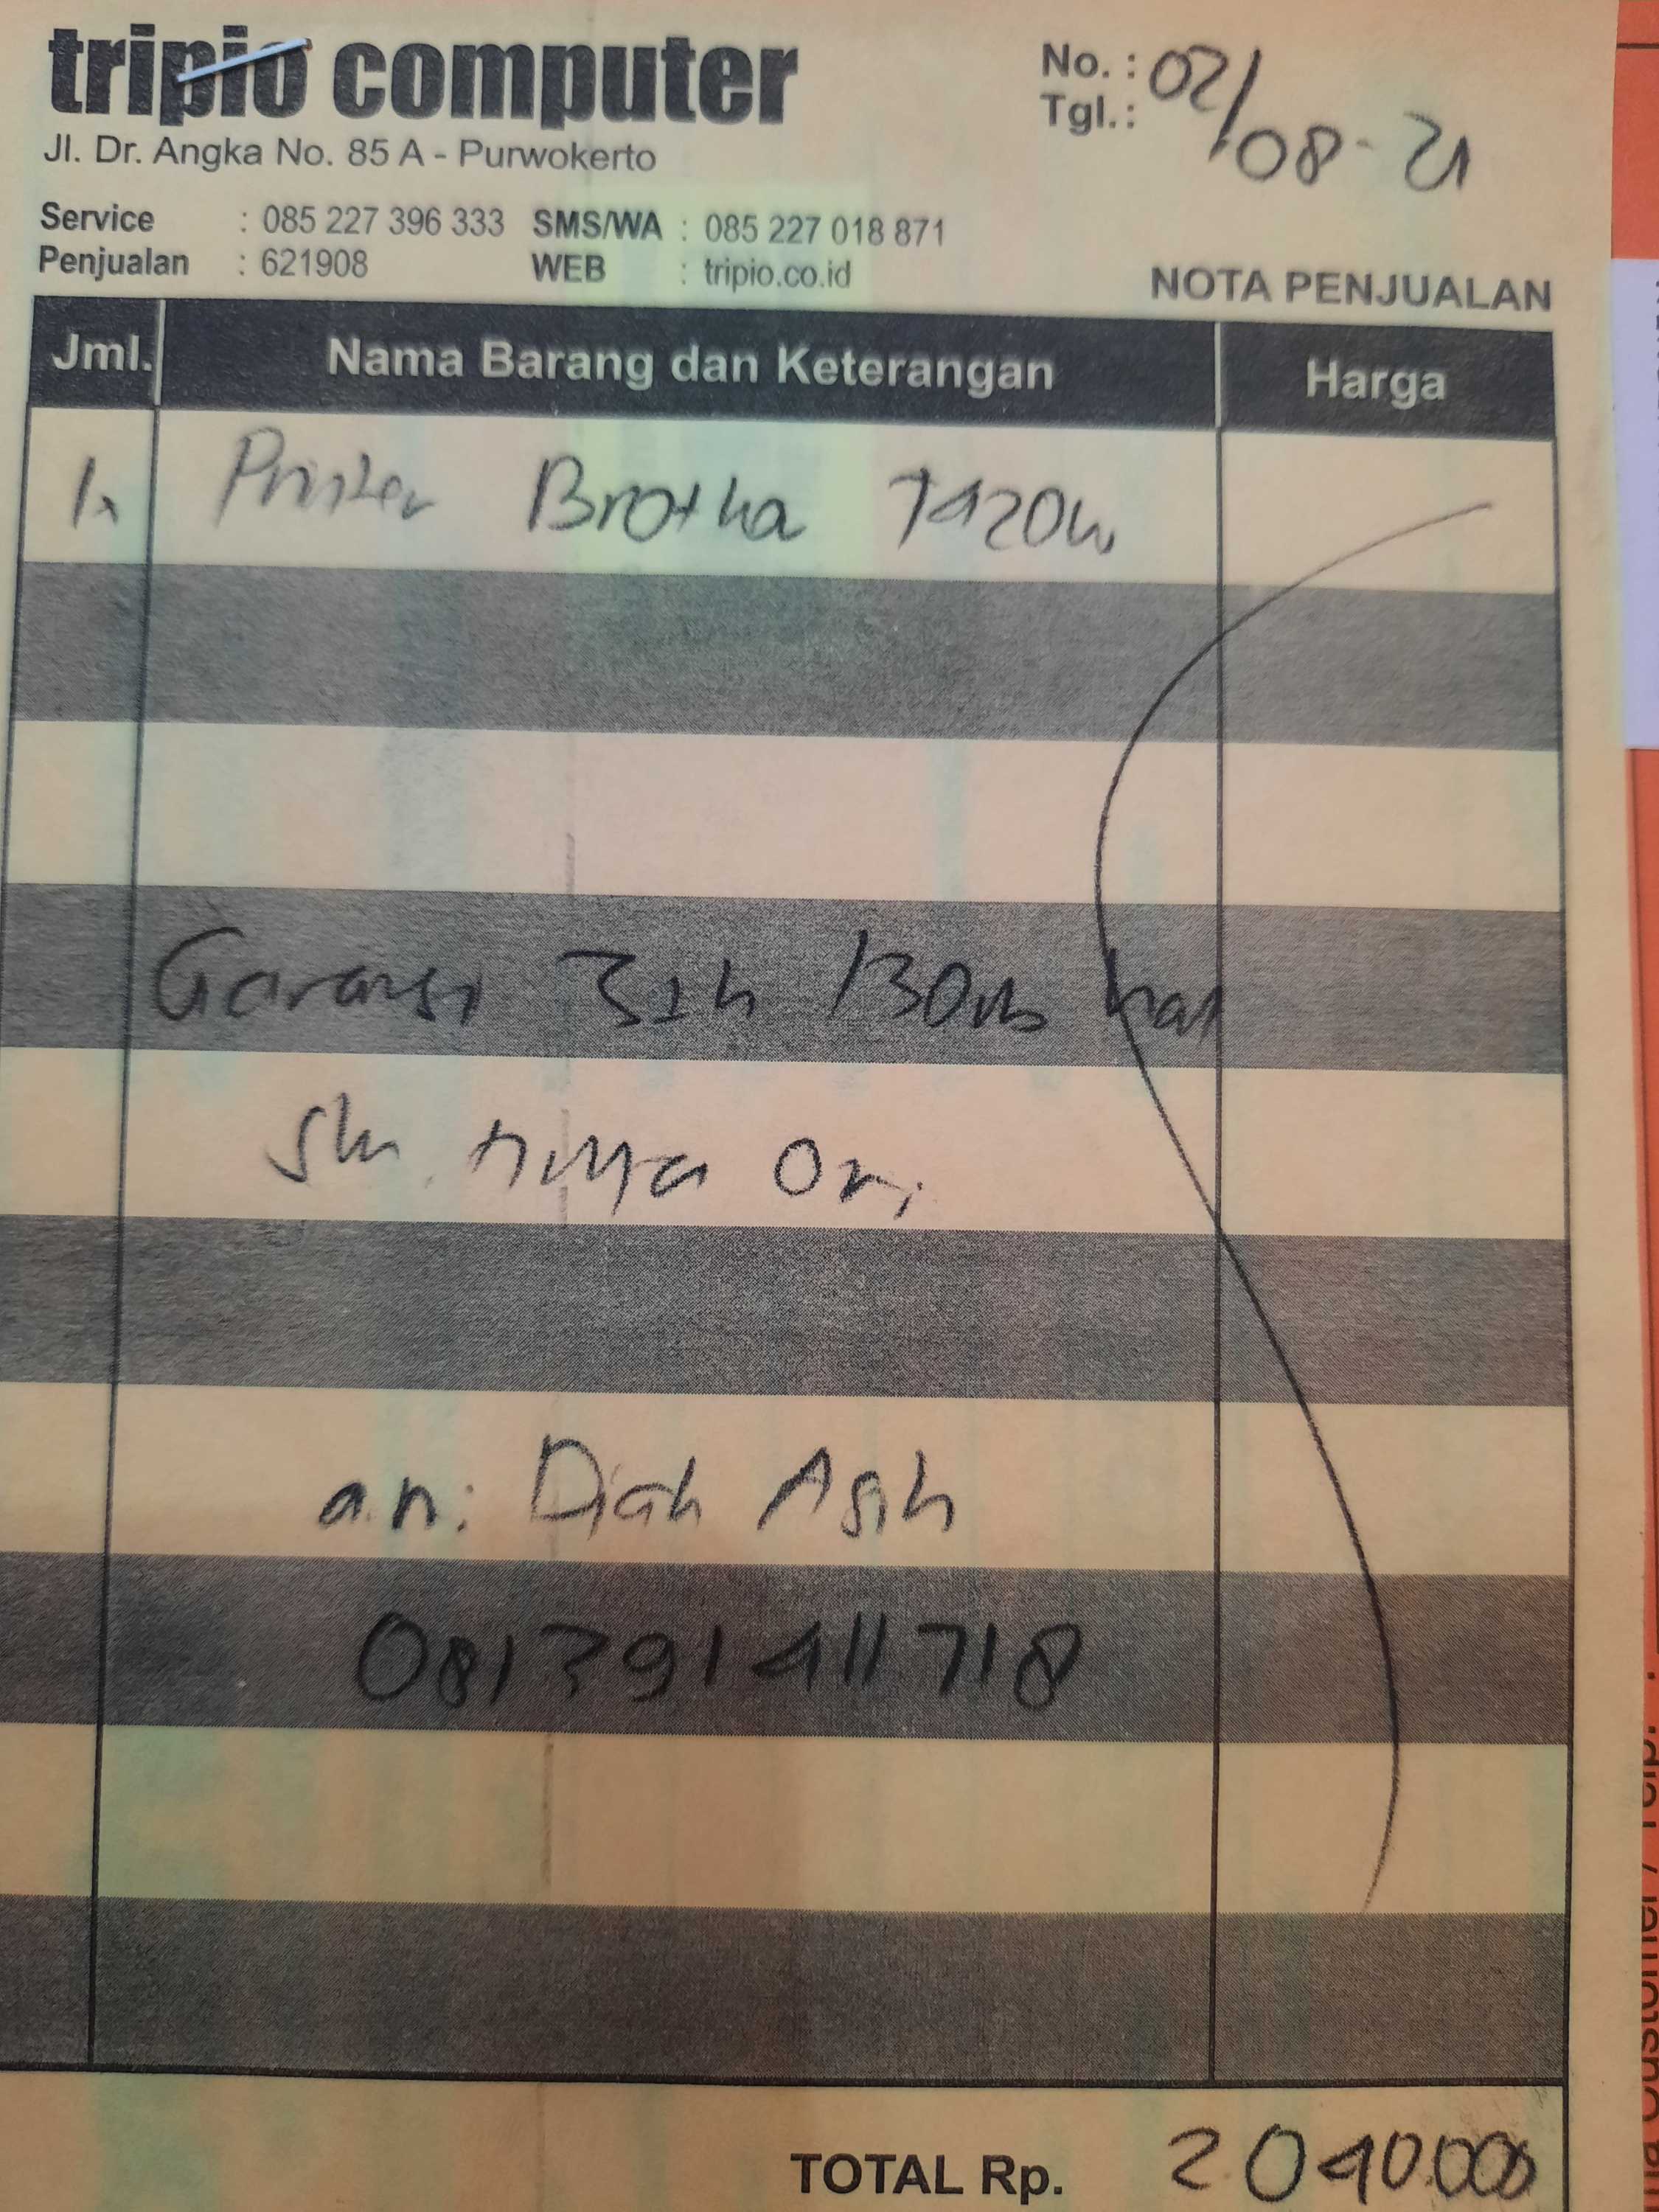 tripio computer
Jl. Dr. Angka No. 85 A - Purwokerto
No. :
Tgl.: 02/08-21
Service : 085 227 396 333 SMS/WA : 085 227 018 871
Penjualan : 621908 WEB : tripio.co.id
NOTA PENJUALAN
Jml. Nama Barang dan Keterangan Harga
1x Printer Brother T420W
Garansi 3th /30rb
Ori
a.n: Diah Asih
081391411718
TOTAL Rp. 2040.000